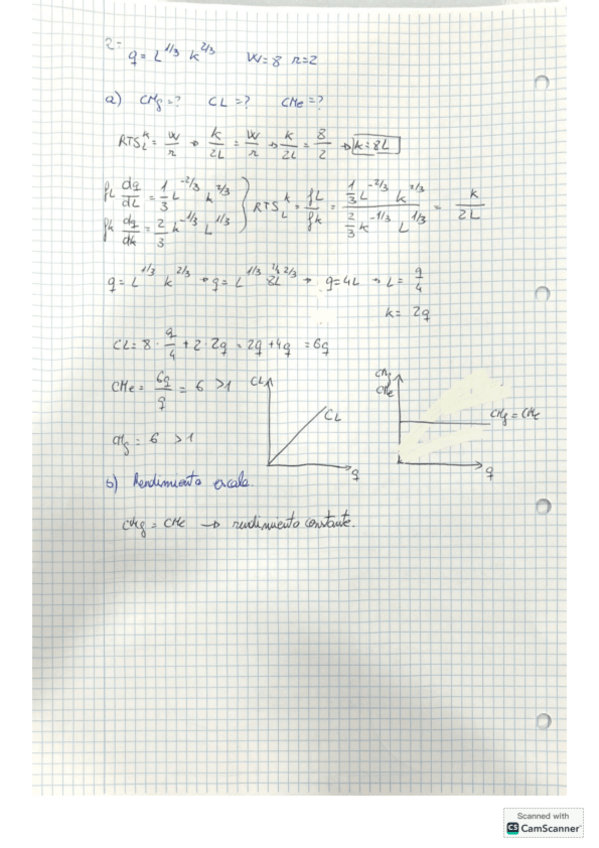 2=
q = L^1/3 k^2/3 W=8 r=2
a) CMg=? CL=? CMe=?
RTS^k_L = W/r → k/2L = W/r → k/2L = 8/2 → k=8L
fL dq/dL = 1/3 L^-2/3 k^2/3
fk dq/dk = 2/3 k^-1/3 L^1/3
RTS^k_L = fL/fk = 1/3 L^-2/3 k^2/3 / 2/3 k^-1/3 L^1/3 = k/2L
q = L^1/3 k^2/3 → q = L^1/3 8L^2/3 → q=4L → L = q/4
k = 2q
CL = 8 · q/4 + 2 · 2q = 2q + 4q = 6q
CMe = 6q/q = 6 >1
CL
CL
q
CMg
CMe
CMg = CMe
q
CMg = 6 >1
b) Rendimiento escala.
CMg = CMe → rendimiento constante.
Scanned with
CS CamScanner